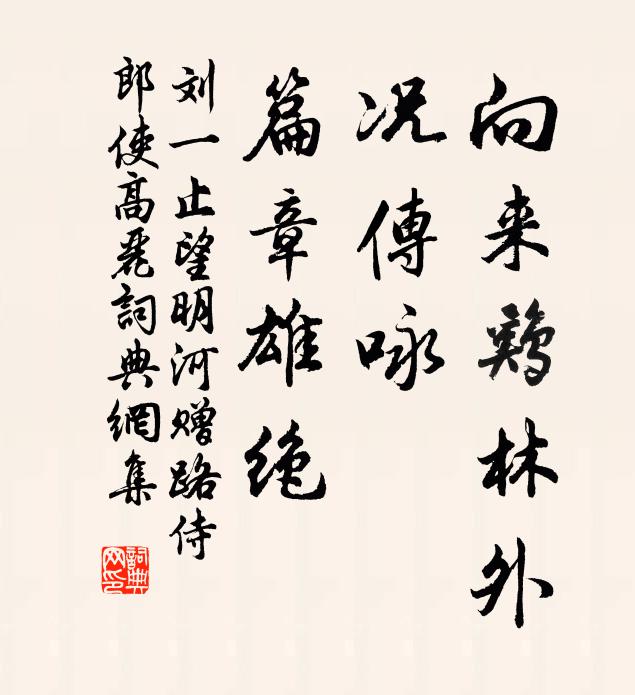 向来鷄林外
况傳咏
篇章雄绝
刘一止望明河赠路侍
郎使高麗詞典網集
詞典网印